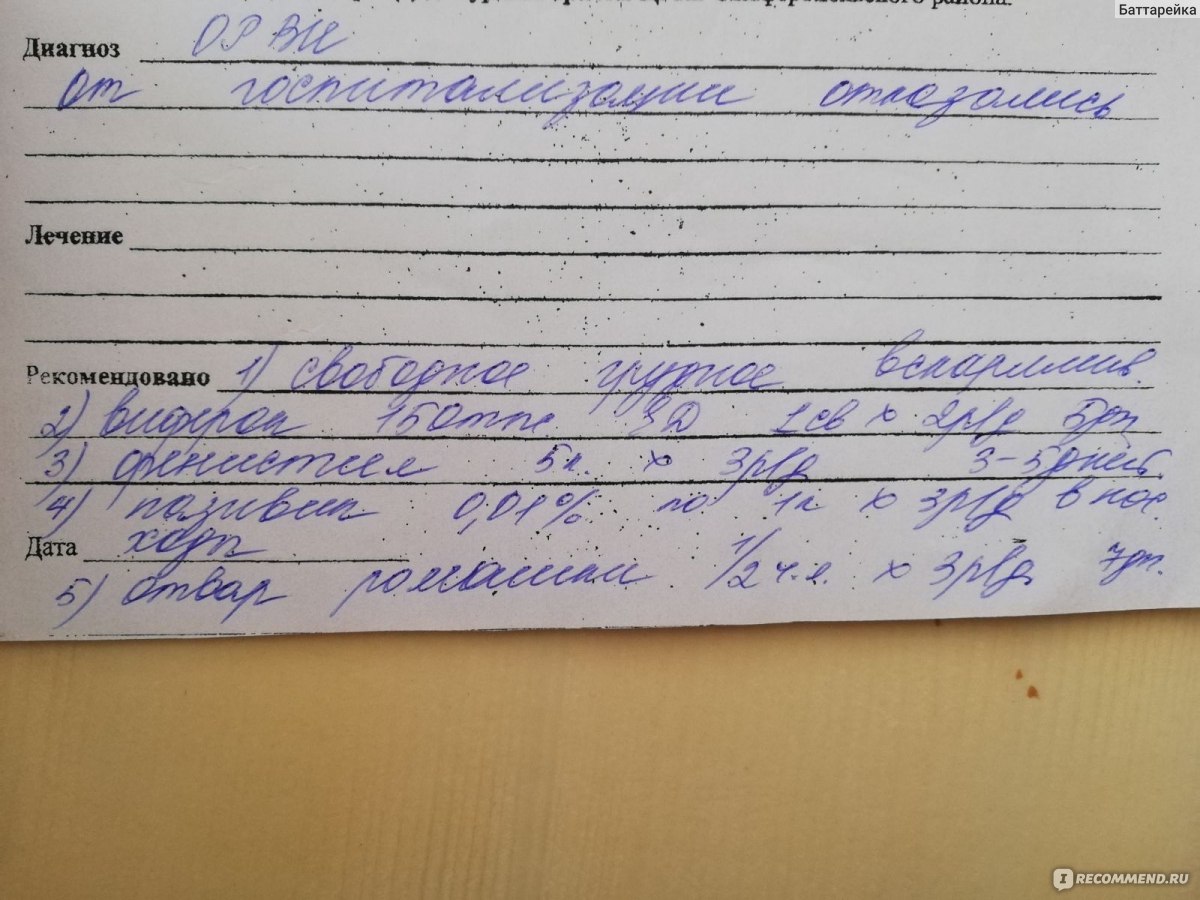 Баттарейка
района.
Диагноз ОРВИ
от госпитализации отказались
Лечение
Рекомендовано 1) свободное грудное вскармлив.
2) виферон 150тыс ЕД 1св х 2р/д 5дн
3) фенистил 5к. х 3р/д 3-5дней.
4) називин 0,01% по 1к х 3р/д в нос.
Дата ходы
5) отвар ромашки 1/2 ч.л. х 3р/д 7дн.
IRECOMMEND.RU